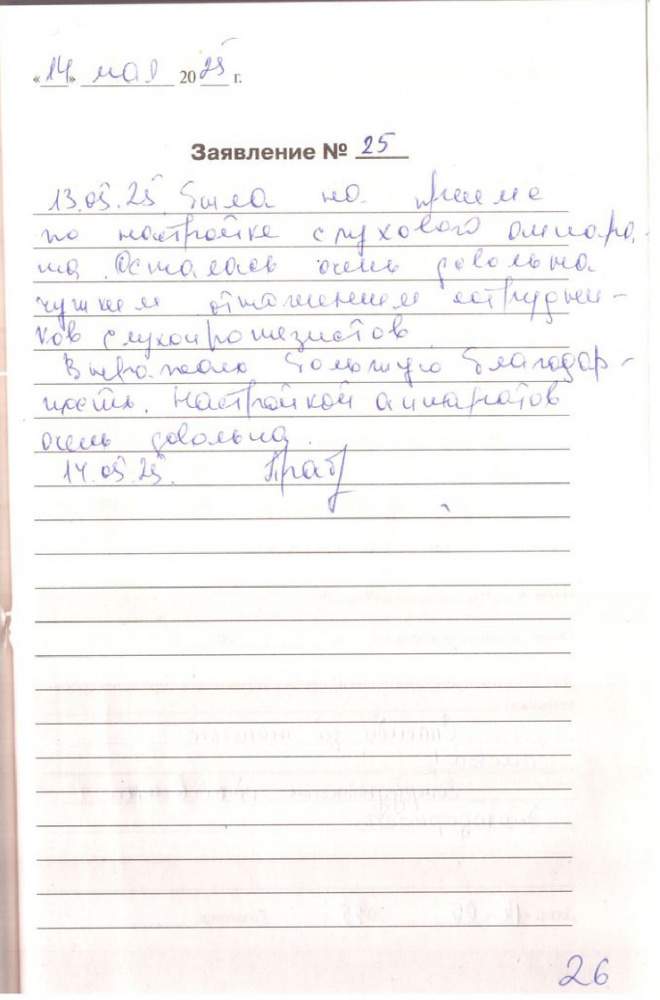 «14» мая 2025 г.
Заявление № 25
13.05.25. была на приеме
по настройке слухового аппара-
та. Осталась очень довольна
чутким отношением сотрудни-
ков слухопротезистов.
Выражаю большую благодар-
ность. Настройкой аппаратов
очень довольна.
14.05.25.
26